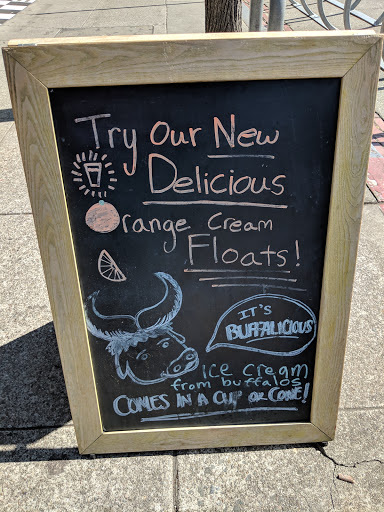 Try Our New
Delicious
Orange Cream
Floats!
IT'S
BUFFALICIOUS
ice cream
from buffalos
COMES IN A CUP OR CONE!